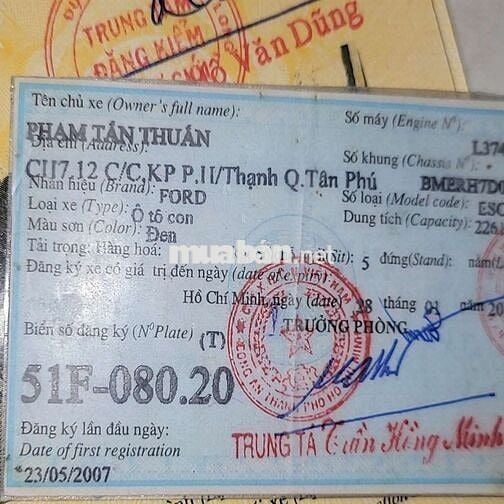 TRUNG TÂM
ĐĂNG KIỂM
Văn Dũng
Tên chủ xe (Owner's full name):
PHẠM TẤN THUẤN
Số máy (Engine Nº):
L374
Địa chỉ (Address):
Số khung (Chassis Nº)
C117.12 C/C,KP P.H/Thạnh Q.Tân Phú
BMERH7D0
Nhãn hiệu (Brand):
FORD
Số loại (Model code): ESC
Loại xe (Type): Ô tô con
Dung tích (Capacity): 226
Màu sơn (Color): Đen
Tải trọng: Hàng hoá:
muaban.net
(Sit): 5 đứng(Stand):
Đăng ký xe có giá trị đến ngày (date of expiry)
Hồ Chí Minh, ngày (date) 28 tháng 01 năm 20
Biển số đăng ký (NºPlate) (T)
TRƯỞNG PHÒNG
51F-080.20
Đăng ký lần đầu ngày:
Date of first registration
TRUNG TÁ Trần Hồng Minh
23/05/2007